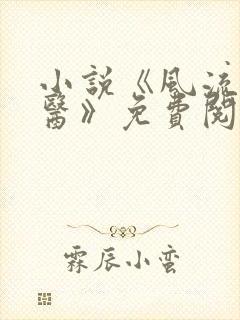 小説《風流
醫》免費閱
霖辰小蛮